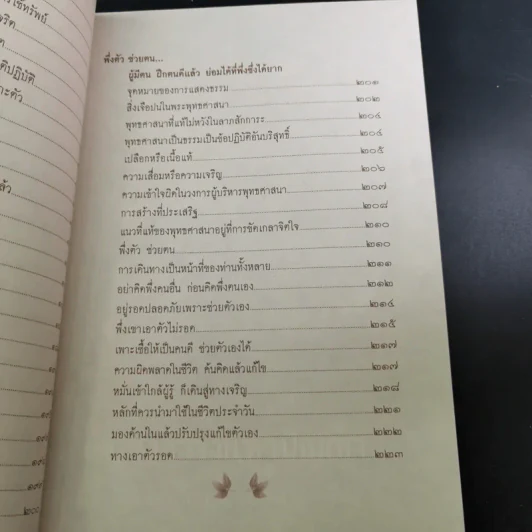 การใช้ทรัพย์
ปฏิบัติ
แล้ว
๒๐๐
พึ่งตัว ช่วยตน...
ผู้มีตน ฝึกตนดีแล้ว ย่อมได้ที่พึ่งซึ่งได้ยาก
จุดหมายของการแสดงธรรม ๒๐๑
สิ่งเจือปนในพระพุทธศาสนา ๒๐๒
พุทธศาสนาที่แท้ไม่หวังในลาภสักการะ ๒๐๔
พุทธศาสนาเป็นธรรมเป็นข้อปฏิบัติอันบริสุทธิ์ ๒๐๔
เปลือกหรือเนื้อแท้ ๒๐๕
ความเสื่อมหรือความเจริญ ๒๐๖
ความเข้าใจผิดในวงการผู้บริหารพุทธศาสนา ๒๐๗
การสร้างที่ประเสริฐ ๒๐๘
แนวที่แท้ของพุทธศาสนาอยู่ที่การขัดเกลาจิตใจ ๒๑๐
พึ่งตัว ช่วยตน ๒๑๐
การเดินทางเป็นหน้าที่ของท่านทั้งหลาย ๒๑๑
อย่าคิดพึ่งคนอื่น ก่อนคิดพึ่งตนเอง ๒๑๒
อยู่รอดปลอดภัยเพราะช่วยตัวเอง ๒๑๔
พึ่งเขาเอาตัวไม่รอด ๒๑๕
เพาะเชื้อให้เป็นคนดี ช่วยตัวเองได้ ๒๑๗
ความผิดพลาดในชีวิต ค้นคิดแล้วแก้ไข ๒๑๗
หมั่นเข้าใกล้ผู้รู้ ก็เดินสู่ทางเจริญ ๒๑๘
หลักที่ควรนำมาใช้ในชีวิตประจำวัน ๒๒๑
มองด้านในแล้วปรับปรุงแก้ไขตัวเอง ๒๒๒
ทางเอาตัวรอด ๒๒๓